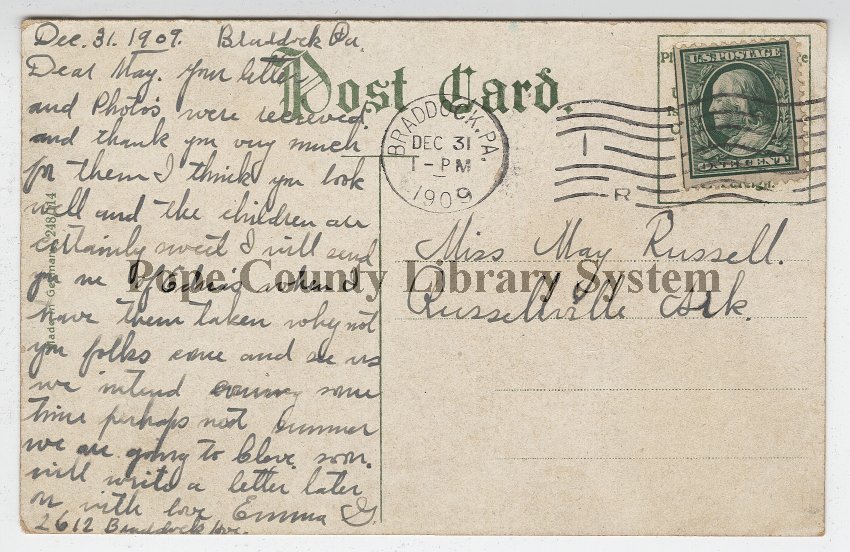 Dec. 31. 1909. Braddock Pa.
Dear May. Your letter
and Photos were received
and thank you very much
for them I think you look
well and the children are
certainly sweet I will send
you one of Edna's when I
have them taken why not
you folks come and see us
we intend coming some
time perhaps next summer
we are going to Cleve. soon.
will write a letter later
on with love Emma G.
2612 Braddock Ave.
Made in Germany
Post Card.
BRADDOCK, PA.
DEC 31
1-PM
1909
1
R
U.S. POSTAGE
ONE CENT
Miss May Russell.
Russellville Ark.
Pope County Library System